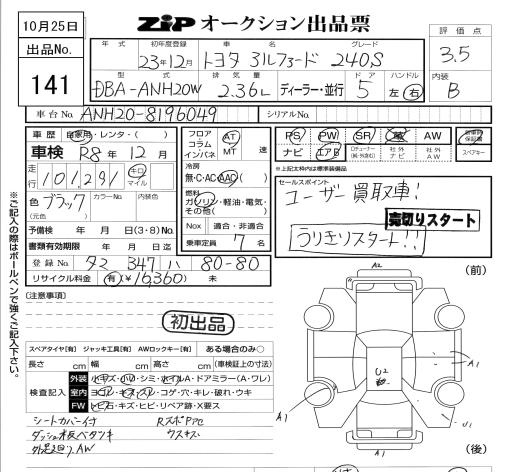 10月25日
ZiP オークション出品票
出品No.
141
年式 初年度登録 車名 グレード
23年12月 トヨタ アルファード 240S
型式 排気量 ディーラー・並行 ドア ハンドル
DBA-ANH20W 2.36L 5 左 右
評価点
3.5
内装
B
車台No. ANH20-8196049
シリアルNo.
車歴 自家用・レンタ・( )
車検 R8年 12月
走行 101,291 キロ マイル
色 ブラック カラーNo. 内装色
(元色)
予備検 年 月 日(3・8)No.
書類有効期限 年 月 日迄
登録No. 347 ハ 80-80
リサイクル料金 (有)(¥16,360) 未
フロア コラム インパネ AT MT 速
冷房
無・C・AC(AAC)
燃料
ガソリン・軽油・電気・その他( )
Nox 適合・非適合
乗車定員 7 名
PS PW SR 革 AW
ナビ エアB TVチューナー(純・外含む) 社外ナビ 社外AW
新車時保証書
スペアキー
※上記太枠内は標準装備品
セールスポイント
ユーザー買取車!
売切りスタート
うりきりスタート!!
※ご記入の際はボールペンで強くご記入下さい。
(注意事項)
初出品
スペアタイヤ[有] ジャッキ工具[有] AWロックキー[有] ある場合のみ○
長さ cm 幅 cm 高さ cm (車検証上の寸法)
検査記入
外装 小キズ・小凹・シミ・ホイルA・ドアミラー(A・ワレ)
室内 ヨゴレ・キズ・スレ・コゲ・穴・キレ・破れ・ウキ
FW トビ石・キズ・ヒビ・リペア跡・X要ス
シートカバー付
ダッシュ木板ベタツキ
外足廻り、AW
ウスキズ
(前)
A2
A1
U2
A1
A1
U1
A2
(後)